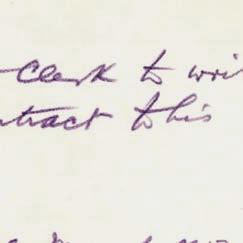 Clerk to wri
ntract to his